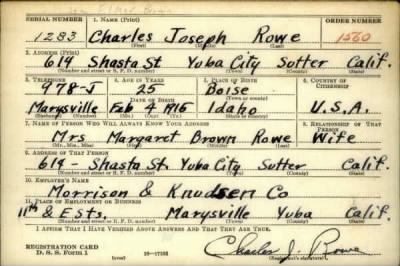 SERIAL NUMBER 1. NAME (Print) ORDER NUMBER
1283 Charles Joseph Rowe 1560
(First) (Middle) (Last)
2. ADDRESS (Print)
614 Shasta St Yuba City Sutter Calif.
(Number and street or R. F. D. number) (Town) (County) (State)
3. TELEPHONE 4. AGE IN YEARS 5. PLACE OF BIRTH 6. COUNTRY OF CITIZENSHIP
978-J 25 Boise
DATE OF BIRTH (Town or county)
Marysville Feb 4 1915 Idaho U.S.A.
(Exchange) (Mo.) (Day) (Yr.) (State or country)
7. NAME OF PERSON WHO WILL ALWAYS KNOW YOUR ADDRESS 8. RELATIONSHIP OF THAT PERSON
Mrs Margaret Brown Rowe Wife
(Mr., Mrs., Miss) (First) (Middle) (Last)
9. ADDRESS OF THAT PERSON
614 - Shasta St. Yuba City Sutter Calif.
(Number and street or R. F. D. number) (Town) (County) (State)
10. EMPLOYER'S NAME
Morrison & Knudsen Co
11. PLACE OF EMPLOYMENT OR BUSINESS
11th & E Sts. Marysville Yuba Calif.
(Number and street or R. F. D. number) (Town) (County) (State)
I AFFIRM THAT I HAVE VERIFIED ABOVE ANSWERS AND THAT THEY ARE TRUE.
REGISTRATION CARD
D. S. S. Form 1 (over) 16-17105 Charles J. Rowe